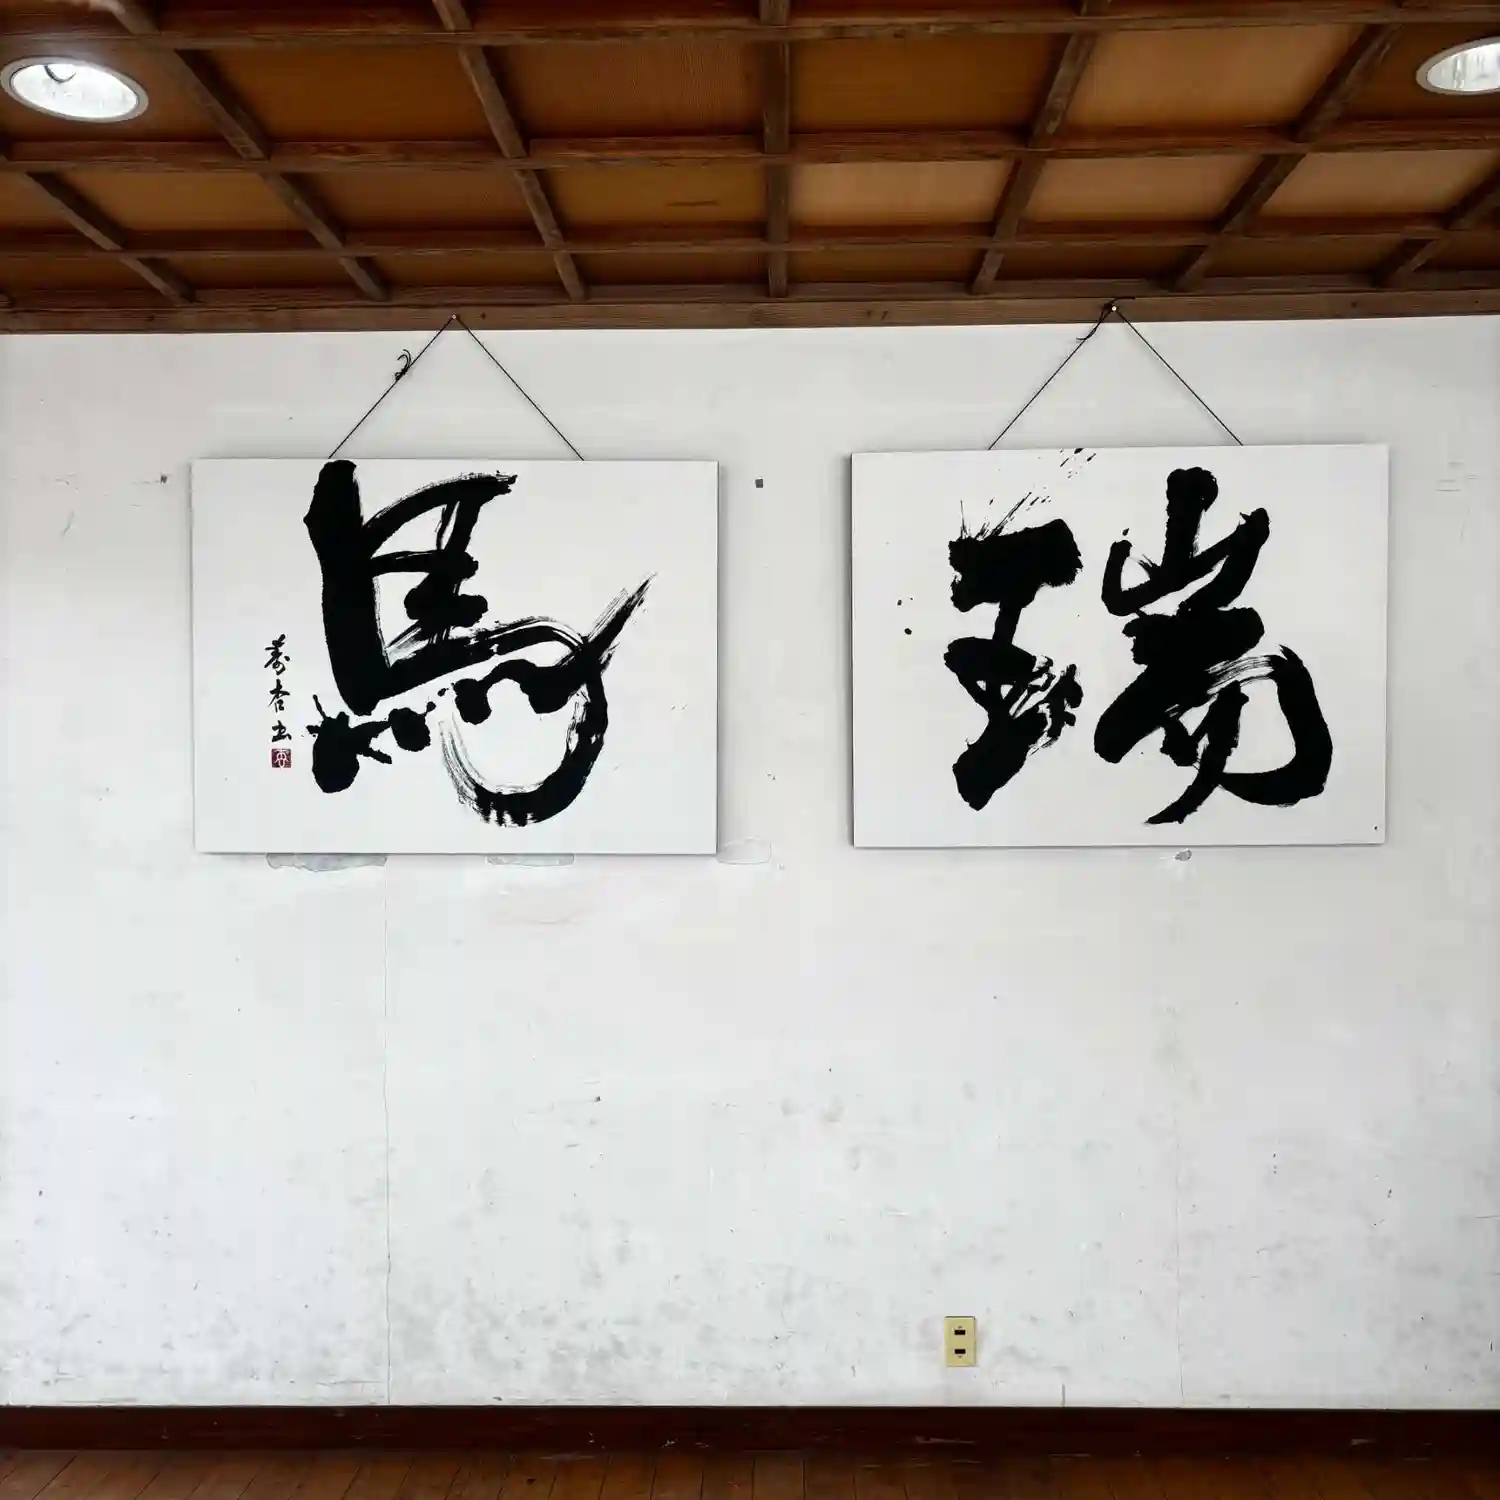 瑞
馬
寿杏書